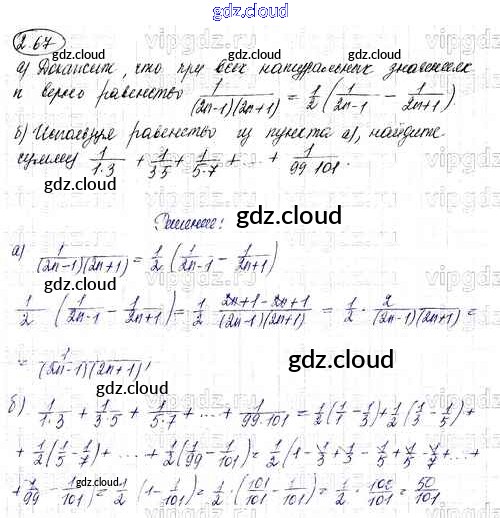 gdz.cloud
2.67
gdz.cloud
а) Докажите, что при всех натуральных значениях
n верно равенство 1/((2n-1)(2n+1)) = 1/2 (1/(2n-1) - 1/(2n+1))
gdz.cloud
б) Используя равенство из пункта а), найдите
сумму 1/(1·3) + 1/(3·5) + 1/(5·7) + ... + 1/(99·101).
gdz.cloud
Решение:
gdz.cloud
а) 1/((2n-1)(2n+1)) = 1/2 (1/(2n-1) - 1/(2n+1))
1/2 (1/(2n-1) - 1/(2n+1)) = 1/2 · (2n+1-2n+1)/((2n-1)(2n+1)) = 1/2 · 2/((2n-1)(2n+1)) =
= 1/((2n-1)(2n+1)),
gdz.cloud
gdz.cloud
б) 1/(1·3) + 1/(3·5) + 1/(5·7) + ... + 1/(99·101) = 1/2 (1/1 - 1/3) + 1/2 (1/3 - 1/5) +
+ 1/2 (1/5 - 1/7) + ... + 1/2 (1/99 - 1/101) = 1/2 (1 - 1/3 + 1/3 - 1/5 + 1/5 - 1/7 + ...
+ 1/99 - 1/101) = 1/2 (1 - 1/101) = 1/2 · (101/101 - 1/101) = 1/2 · 100/101 = 50/101.
gdz.cloud
gdz.cloud